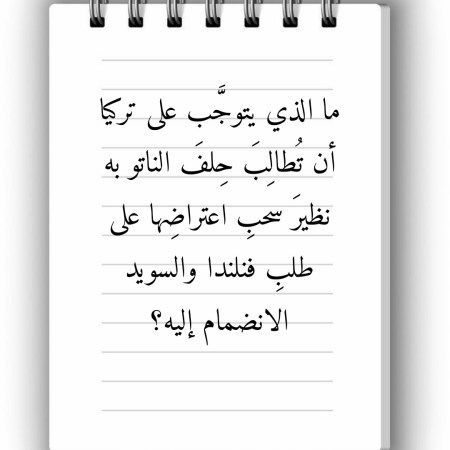 ما الذي يتوجَّب على تركيا
أن تُطالِبَ حِلفَ الناتو به
نظيرَ سحبِ اعتراضِها على
طلبِ فنلندا والسويد
الانضمام إليه؟